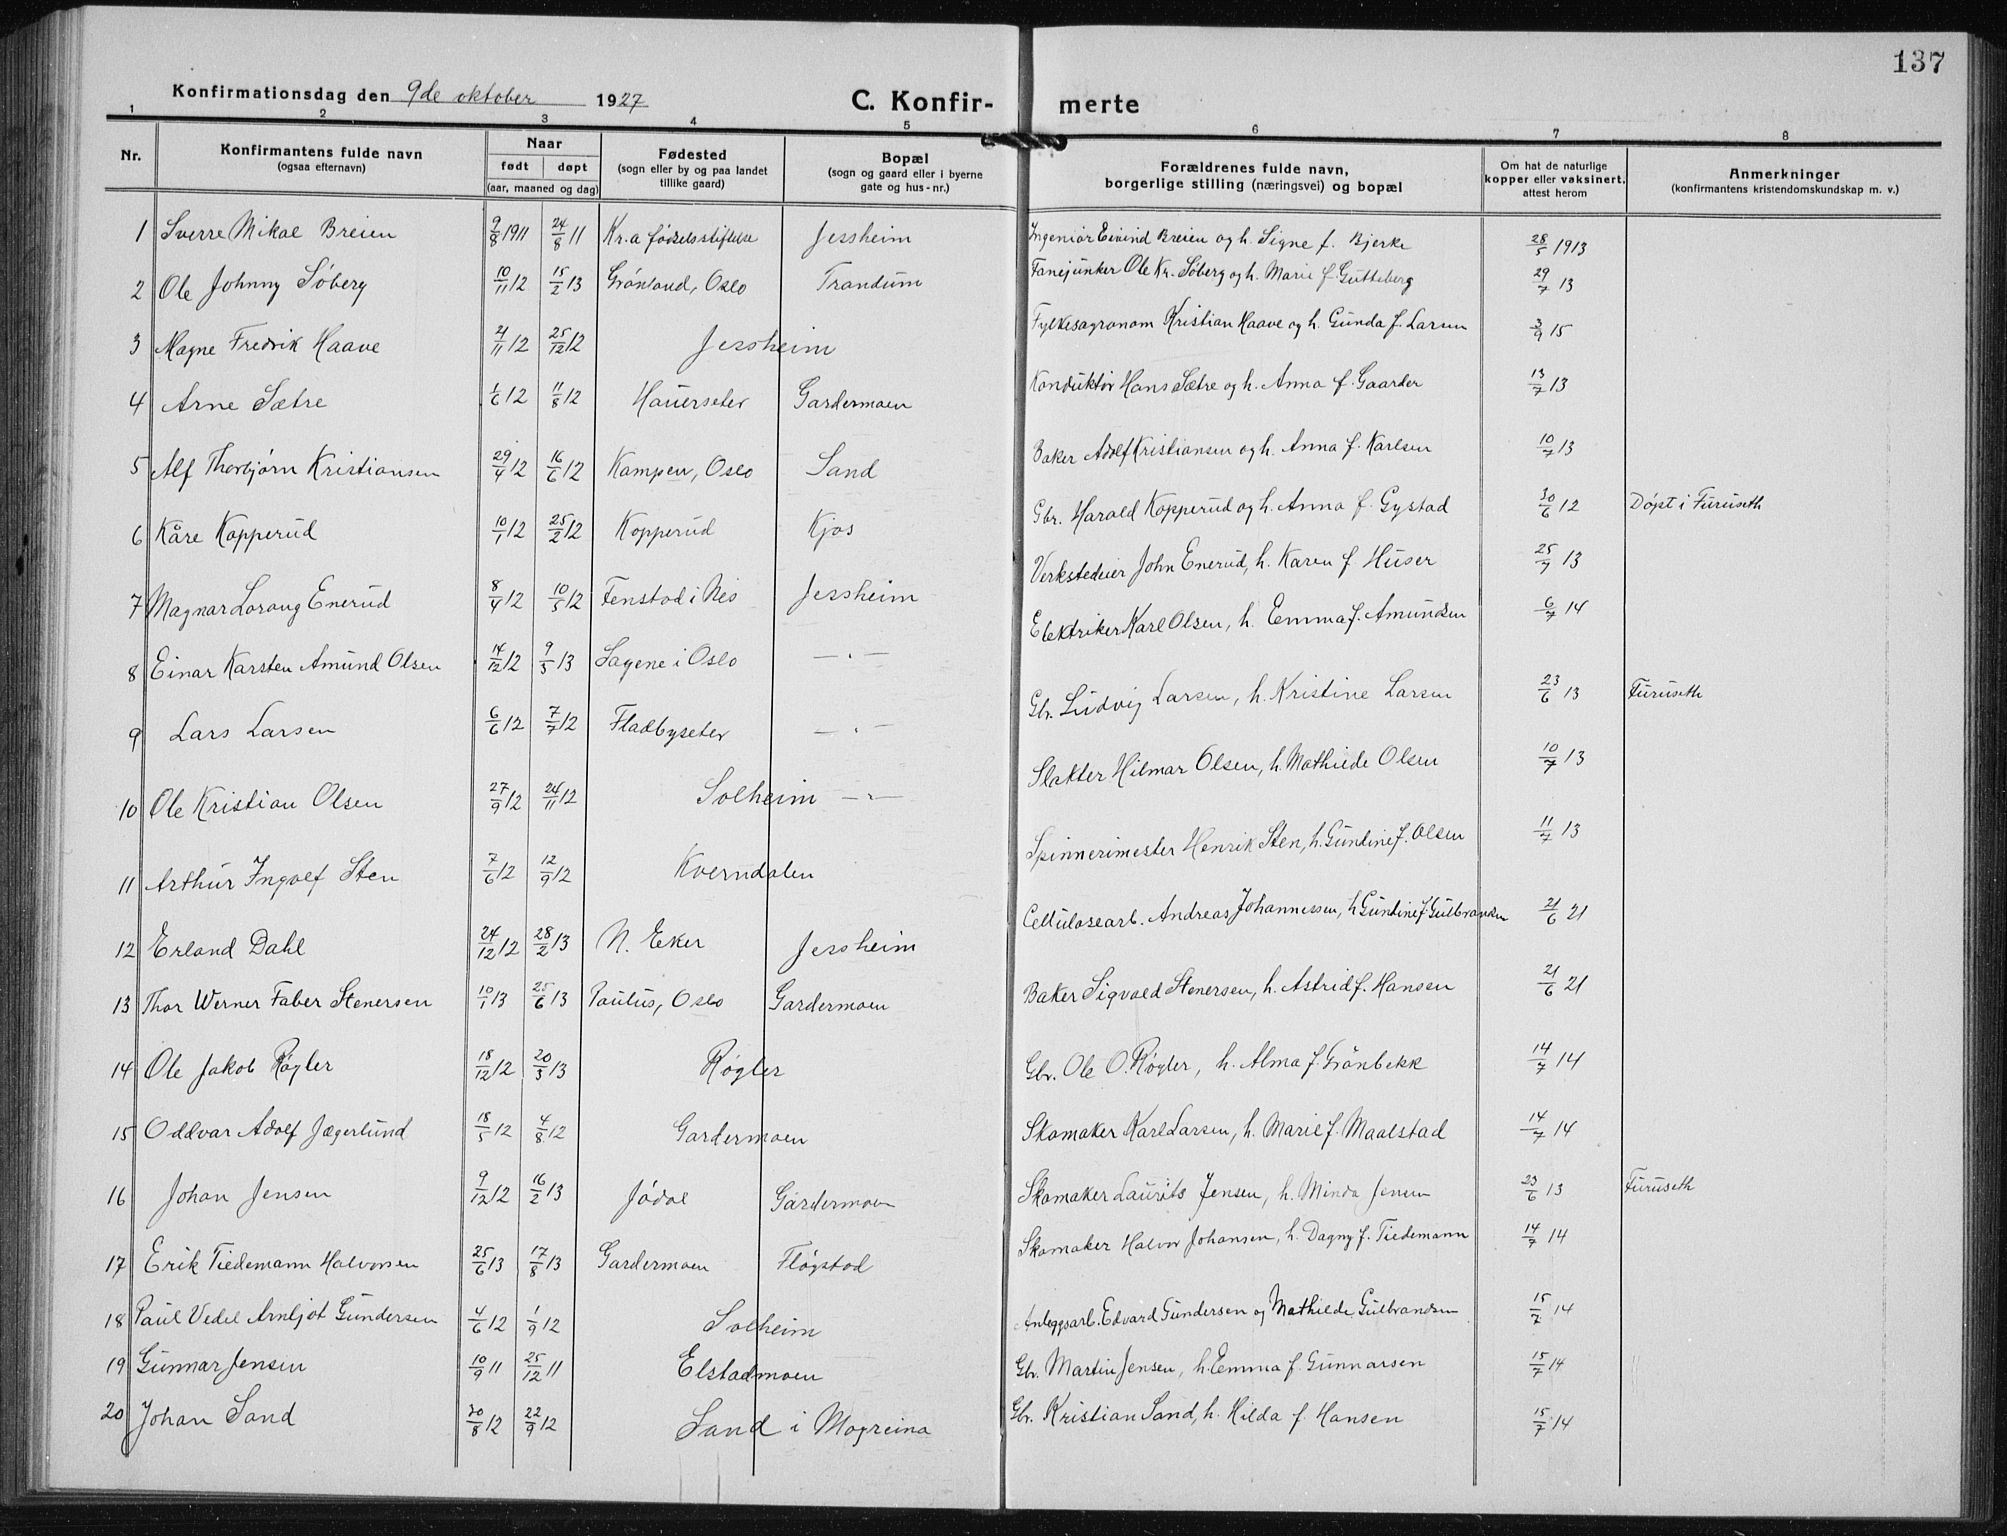 137
Konfirmationsdag den 9de oktober 1927
C. Konfir- merte
1 2 3 4 5 6 7 8
Nr.
Konfirmantens fulde navn
(ogsaa efternavn)
Naar
født døpt
(aar, maaned og dag)
Fødested
(sogn eller by og paa landet
tillike gaard)
Bopæl
(sogn og gaard eller i byerne
gate og hus-nr.)
Forældrenes fulde navn,
borgerlige stilling (næringsvei) og bopæl
Om hat de naturlige
kopper eller vaksinert,
attest herom
Anmerkninger
(konfirmantens kristendomskundskap m. v.)
1 Sverre Mikal Breien 9/8 1911 24/8 11 Kr.a födselsstiftelse Jessheim Ingeniör Eivind Breien og h. Signe f. Bjerke 28/5 1913
2 Ole Johnny Söberg 10/11 12 15/2 13 Grönland, Oslo Trandum Fanejunker Ole Kr. Söberg og h. Marie f. Gutteberg 29/7 13
3 Magne Fredrik Haave 21/11 12 25/12 12 Jessheim Fylkesagronom Kristian Haave og h. Gunda f. Larsen 3/9 15
4 Arne Sætre 1/6 12 11/8 12 Hauerseter Gardermoen Konduktör Hans Sætre og h. Anna f. Gaarder 13/7 13
5 Alf Thorbjörn Kristiansen 29/4 12 16/6 12 Kampen, Oslo Sand Baker Adolf Kristiansen og h. Anna f. Karlsen 10/7 13
6 Kåre Kopperud 10/1 12 25/2 12 Kopperud Kjos Gbr. Harald Kopperud og h. Anna f. Gystad 30/6 12 Döpt i Furuseth
7 Magnar Lorang Enerud 8/4 12 10/5 12 Fenstad i Nes Jessheim Verkstedeier John Enerud, h. Karen f. Huser 25/7 13
8 Einar Karsten Amund Olsen 14/12 12 9/3 13 Sagene i Oslo —"— Elektriker Karl Olsen, h. Emma f. Amundsen 6/7 14
9 Lars Larsen 6/6 12 7/7 12 Fladbyseter —"— Gbr. Ludvig Larsen, h. Kristine Larsen 23/6 13 Furuseth
10 Ole Kristian Olsen 27/9 12 24/11 12 Solheim —"— Slakter Hilmar Olsen, h. Mathilde Olsen 10/7 13
11 Arthur Ingolf Sten 7/6 12 12/9 12 Kverndalen Spinnerimester Henrik Sten, h. Gundine f. Olsen 11/7 13
12 Erland Dahl 24/12 12 28/2 13 N. Eker Jessheim Cellulosearb. Andreas Johannessen, h Gundine f. Gulbrandsen 21/6 21
13 Thor Werner Faber Stenersen 10/1 13 25/6 13 Paulus, Oslo Gardermoen Baker Sigvald Stenersen, h. Astrid f. Hansen 21/6 21
14 Ole Jakob Røgler 18/12 12 20/3 13 Røgler Gbr. Ole O. Røgler, h. Alma f. Grönbekk 14/7 14
15 Oddvar Adolf Jægerlund 18/5 12 4/8 12 Gardermoen Skomaker Karl Larsen, h. Marie f. Maalstad 14/7 14
16 Johan Jensen 9/12 12 16/2 13 Jödal Gardermoen Skomaker Laurits Jensen, h. Minda Jensen 23/6 13 Furuseth
17 Erik Tiedemann Halvorsen 25/6 13 17/8 13 Gardermoen Fløgstad Skomaker Halvor Johansen, h. Dagny f. Tiedemann 14/7 14
18 Paul Vedel Arnljot Gundersen 4/6 12 1/9 12 Solheim Anleggsarb. Edvard Gundersen og Mathilde Gulbrandsen 15/7 14
19 Gunnar Jensen 10/9 11 25/12 11 Elstadmoen Gbr. Martin Jensen, h. Emma f. Gunnarsen 15/7 14
20 Johan Sand 20/8 12 22/9 12 Sand i Mogreina Gbr. Kristian Sand, h. Hilda f. Hansen 15/7 14